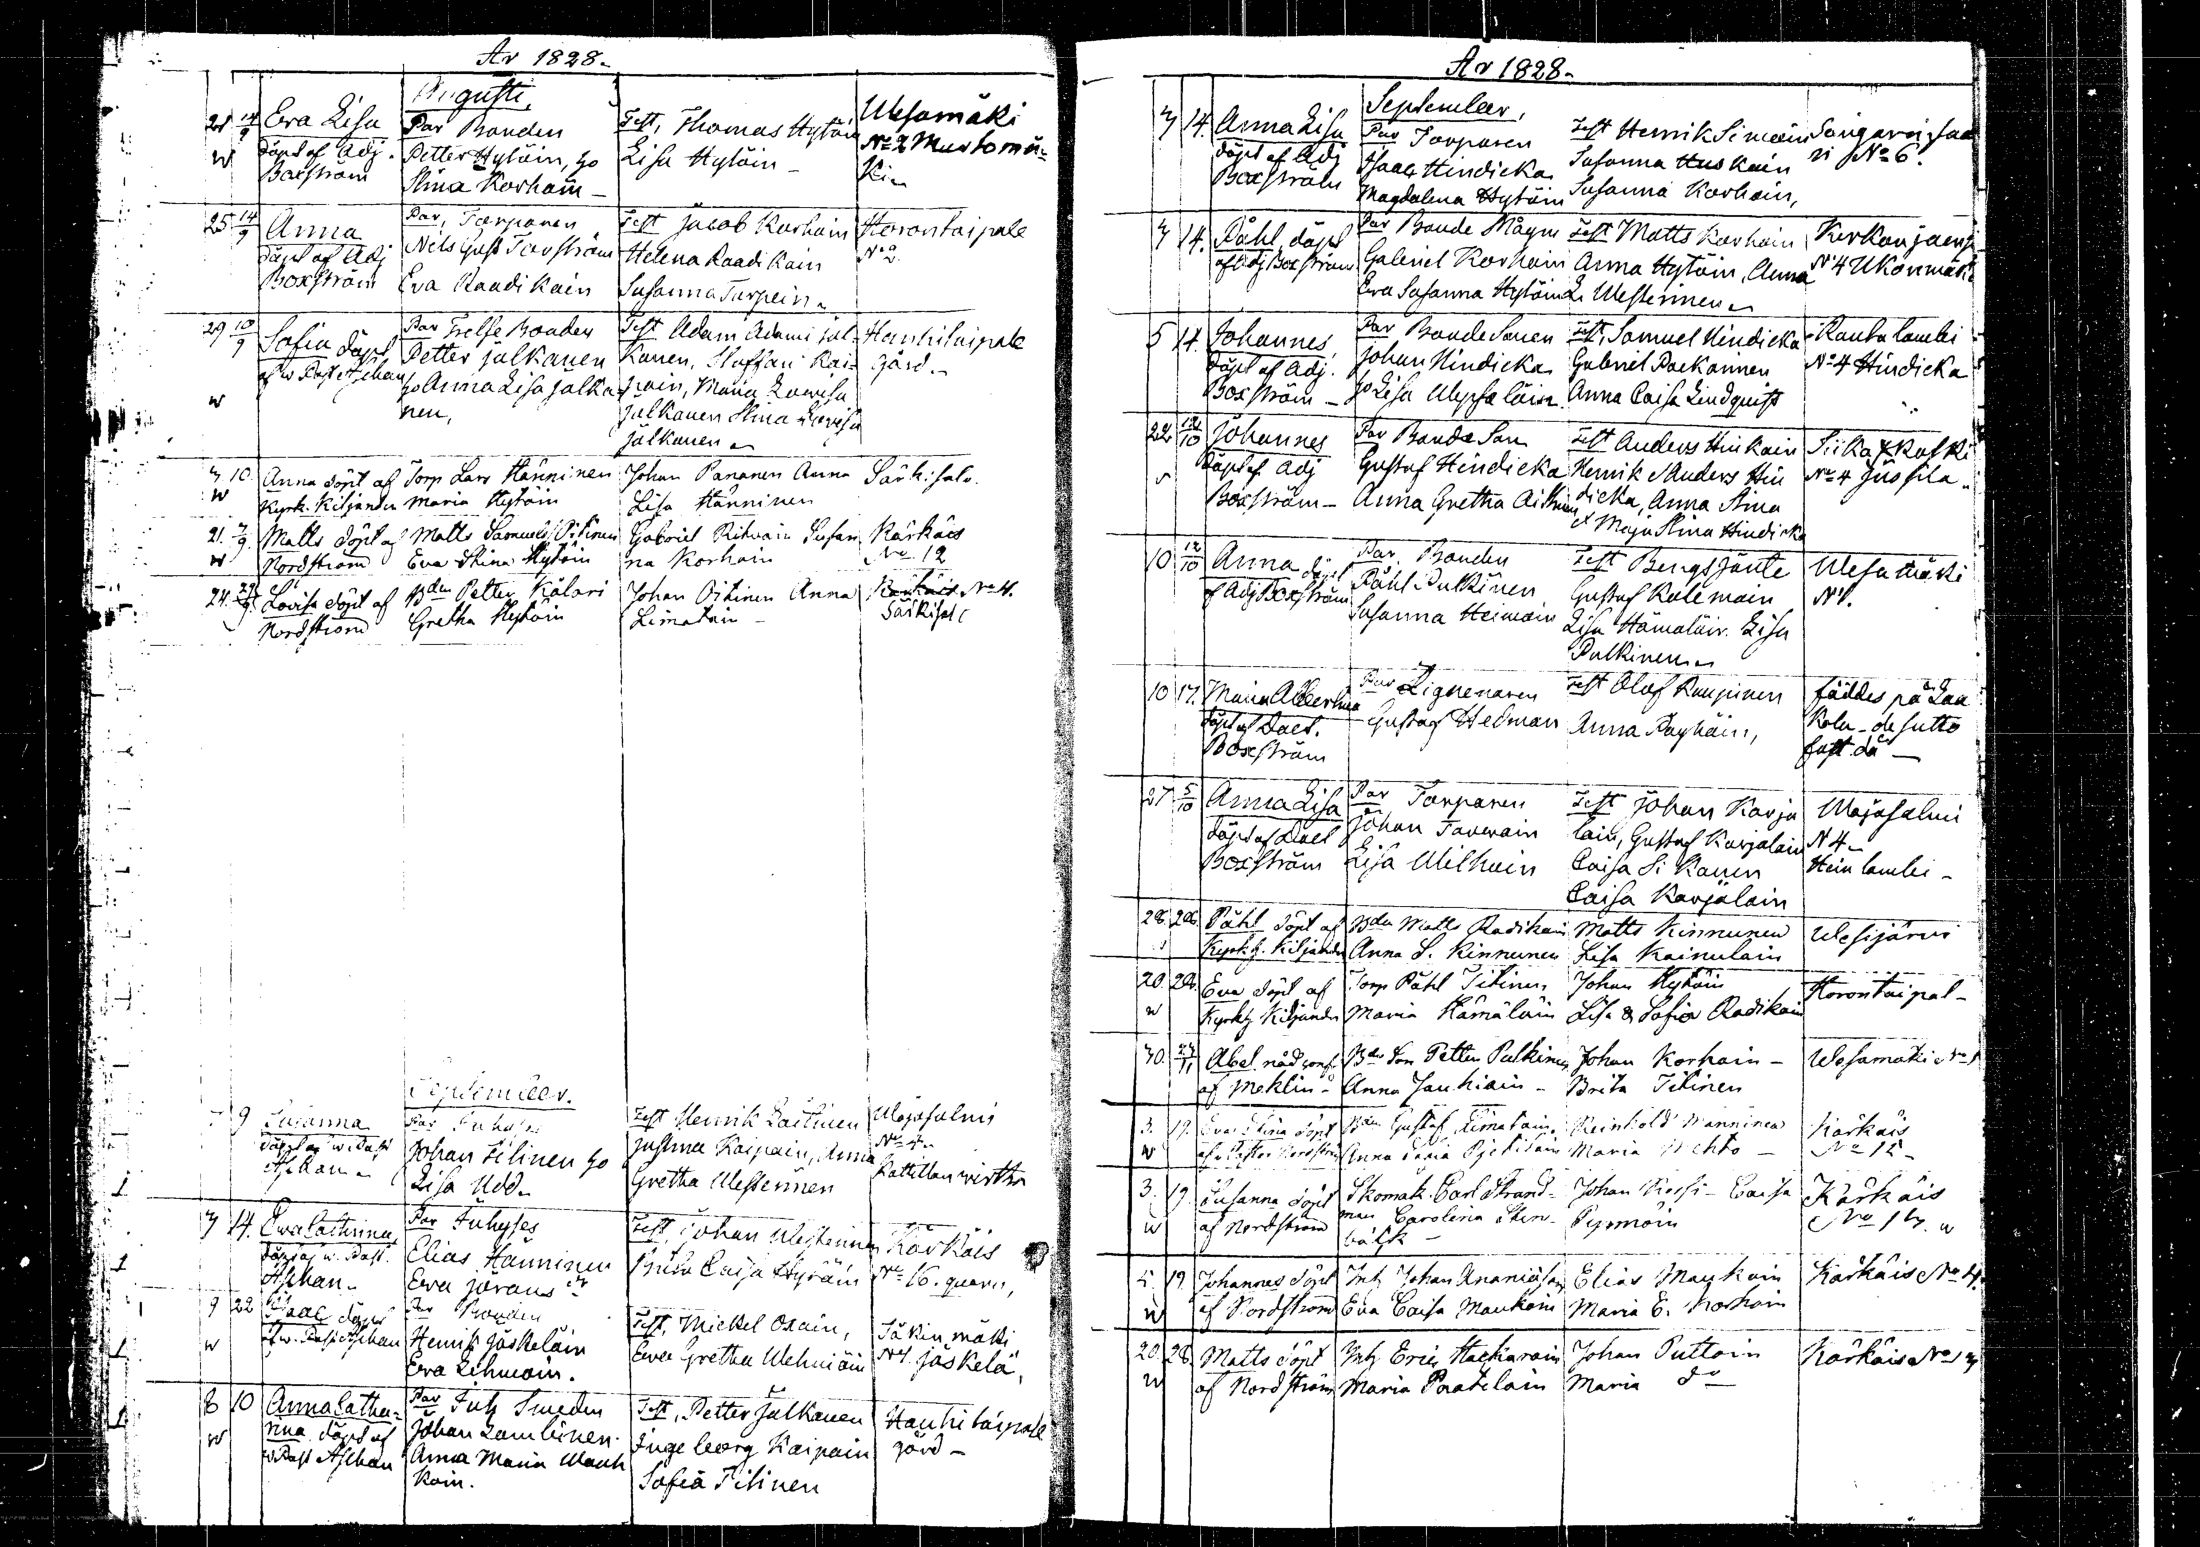 År 1828.
Augusti,
21 14/9 Eva Lisa
döpt af Adj.
Boxström
Par Bonden
Petter Hytöin, ho
Stina Korhoin
Test, Thomas Hytöin
Lisa Hytöin
Wesamäki
No 2 Mustomä=
ki
25 14/9 Anna
döpt af Adj
Boxström
Par, Torparen
Nils Gust Torström
Eva Raadikain
Test Jacob Korhoin
Helena Raadikain
Susanna Turpein
Horontaipale
No 2.
29 10/9 Sofia döpt
af w Past Aschan
Par Frelse Bonden
Petter Jalkanen
ho Anna Lisa Jalka
nen,
Test Adam Adami Jal=
kanen, Staffan Kai=
pain, Maria Lowisa
Jalkanen Stina Lovisa
Jalkanen
Hankitaipale
gård.
3 10. Anna döpt af
Kyrk. Kiljander
Torp Lars Hänninen
Maria Hytöin
Johan Pananen Anna
Lisa Hänninen
Särkisalo.
21. 7/9. Matts döpt af
Nordström
Matts Samuels. Pitinen
Eva Stina Hytöin
Gabriel Ritvain Susan
na Korhoin
Kärkäis
No 12
24. Lovisa döpt af
Nordström
Bden Petter Kalari
Gretha Hytöin
Johan Oitinen Anna
Limatain
Kärkäis No 4.
Särkisal
September.
9 Susanna
döpt af w. Past
Aschan
Par Inhyses
Johan Titinen ho
Lisa Udd.
Test Henrik Laitinen
Justina Kaipain, Anna
Gretha Westerinen
Majasalmi
3 14. Eva Cathrina
döpt af w. Past.
Aschan.
Par Inhyses
Elias Hänninen
Eva
Test, Johan Westerinen
Brita Caisa Hytöin
Kärkäis
No 16. quarn,
9 22 Isaac döpt
af w. Past Aschan
Par Bonden
Henrik Jäskeläin
Eva Lehmoin.
Test, Mickel Oxain,
Eva Gretha Wehniäin
Jäkinmäki
No 1. Jäskelä,
8 10 Anna Catha=
rina döpt af
w Past Aschan
Par Inh Smeden
Johan Lambinen.
Anna Maria Mauk
koin.
Test, Petter Jalkanen
Ingeborg Kaipain
Sofia Titinen
Hankitaipale
gård
År 1828.
September,
3 14. Anna Lisa
döpt af Adj
Boxström
Par Torparen
Isaac Hindicka
Magdalena Hytöin
Test Henrik Simoin
Susanna Huskain
Susanna Korhoin,
Sangarinsaa
ri No 6.
3 14. Påhl, döpt
af Adj Boxström
Par Bonde Mågen
Gabriel Korhoin
Eva Susanna Hytöin
Test Matts Korhoin
Anna Hytöin, Anna
L. Westerinen
Kerkonjoensu
No 4 Ukonmäki
5 14. Johannes
döpt af Adj.
Boxström
Par Bonde Sonen
Johan Hindicka
ho Lisa Wepsäläin
Test, Samuel Hindicka
Gabriel Paekainen
Anna Caisa Lindquist
Rautalambi
No 4 Hindicka
22 12/10 Johannes
döpt af Adj
Boxström
Par Bonde Son
Gustaf Hindicka
Anna Gretha
Test Anders Huskain
Henrik & Anders Hin
dicka, Anna Stina
& Maja Stina Hindicka
Siikakoski
No 4
10 12/10 Anna döpt
af Adj Boxström
Par, Bonden
Påhl Pulkinen
Susanna Heimoin
Test Bengsjänte
Gustaf Kolemain
Lisa Hämäläin. Lisa
Pulkinen
Wesamäki
No 1.
10 17. Maria Albertina
döpt af Doct.
Boxström
Par Lignenaren
Gustaf Hedman
Test Olof Ruupinen
Anna Rayhäin,
föddes på Laa
kola
27 5/10 Anna Lisa
döpt af Doct
Boxström
Par Torparen
Johan Taverain
Lisa Wilhoin
Test Johan Karja
lain, Gustaf Karjalain
Caisa Sikanen
Caisa Karjalain
Majasalmi
N 4
Heinlambi
28. 28. Påhl döpt af
Kyrkh. Kiljander
Bden Matts Radikain
Anna S. Kinnunen
Matts Kinnunen
Lisa Kainulain
Wesijärvi
20. 28. Eva döpt af
Kyrkh Kiljander
Torp Påhl Titinen
Maria Hämäläin
Johan Hytöin
Lisa & Sofia Radikain
Horontaipal
30 Abel nöd
af Meklin
Bde Son Petter Pulkinen
Anna Jauhiain
Johan Korhoin
Brita Titinen
Wesamäki No 1
3. 19. Eva Stina döpt
af Pastor Nordström
Bden Gustaf Limatain.
Reinhold Manninen
Maria Lehto
Kärkäis
No 15
3. 19. Susanna döpt
af Nordström
Skomak. Carl Strand=
man Carolina Sten=
bäck
Johan Rossi Caisa
Pyrmöin
Kärkäis
5. 19. Johannes döpt
af Nordström
Inh Johan Ananiäson
Eva Caisa Maukain
Elias Maukain
Maria E. Korhoin
Kärkäis No 4.
20. 28. Matts döpt
af Nordström
Inh Eric Hackarain
Maria Paatelain
Johan Puttoin
Maria do
Kärkäis No 3